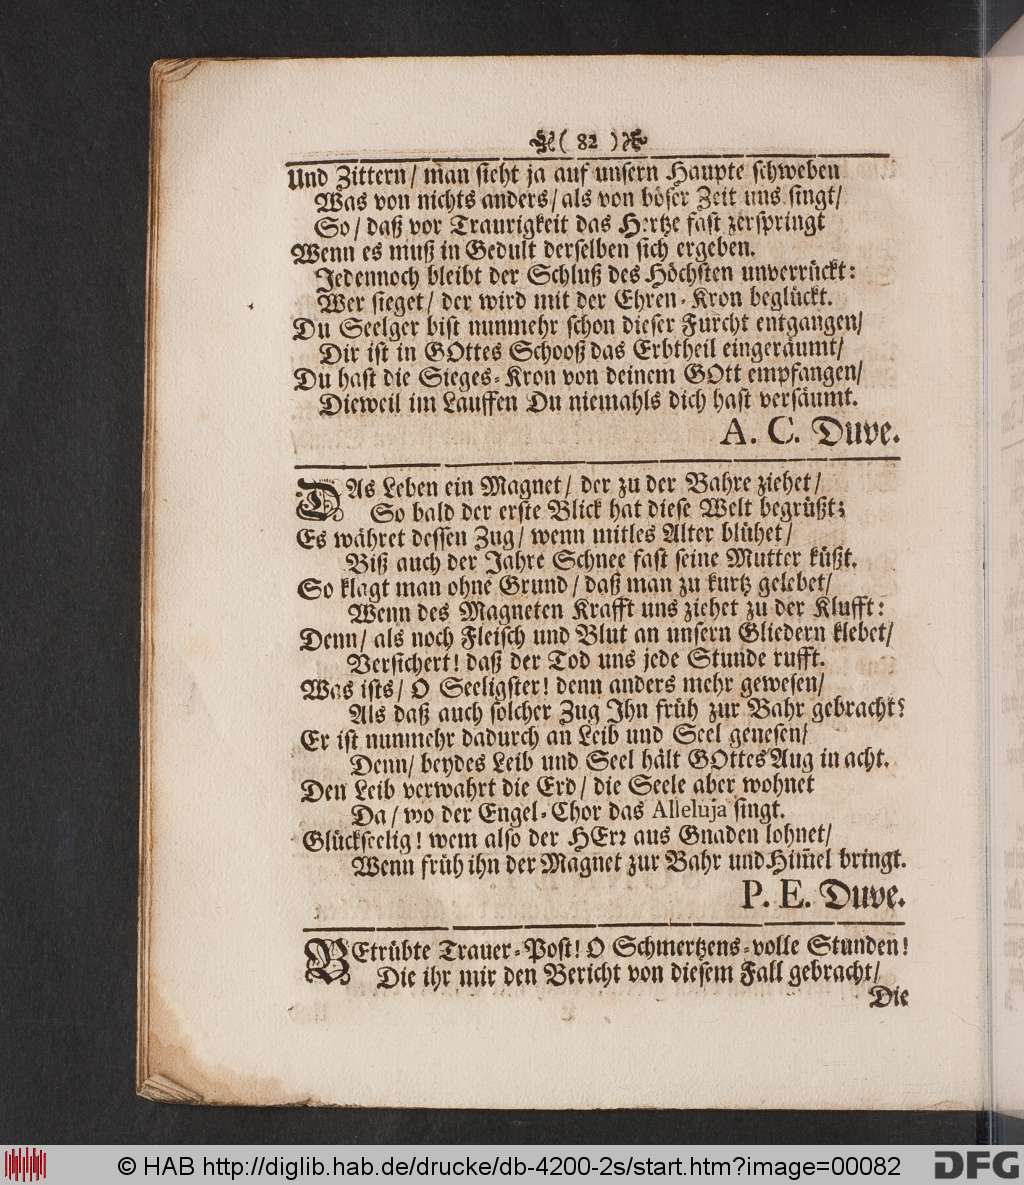 ( 82 )
Und Zittern/ man sieht ja auf unsern Haupte schweben
Was von nichts anders/ als von böser Zeit uns singt/
So/ daß vor Traurigkeit das Hertze fast zerspringt
Wenn es muß in Gedult derselben sich ergeben.
Jedennoch bleibt der Schluß des Höchsten unverrückt:
Wer sieget/ der wird mit der Ehren-Kron beglückt.
Du Seelger bist nunmehr schon dieser Furcht entgangen/
Dir ist in GOttes Schooß das Erbtheil eingeräumt/
Du hast die Sieges-Kron von deinem GOtt empfangen/
Dieweil im Lauffen Du niemahls dich hast versäumt.
A. C. Duve.
DAs Leben ein Magnet/ der zu der Bahre ziehet/
So bald der erste Blick hat diese Welt begrüßt;
Es währet dessen Zug/ wenn mitles Alter blühet/
Biß auch der Jahre Schnee fast seine Mutter küßt.
So klagt man ohne Grund/ daß man zu kurtz gelebet/
Wenn des Magneten Krafft uns ziehet zu der Klufft:
Denn/ als noch Fleisch und Blut an unsern Gliedern klebet/
Versichert! daß der Tod uns jede Stunde rufft.
Was ists/ O Seeligster! denn anders mehr gewesen/
Als daß auch solcher Zug Ihn früh zur Bahr gebracht?
Er ist nunmehr dadurch an Leib und Seel genesen/
Denn/ beydes Leib und Seel hält GOttes Aug in acht.
Den Leib verwahrt die Erd/ die Seele aber wohnet
Da/ wo der Engel-Chor das Alleluja singt.
Glückseelig! wem also der HErr aus Gnaden lohnet/
Wenn früh ihn der Magnet zur Bahr und Him̄el bringt.
P. E. Duve.
BEtrübte Trauer-Post! O Schmertzens-volle Stunden!
Die ihr mir den Bericht von diesem Fall gebracht/
Die
© HAB http://diglib.hab.de/drucke/db-4200-2s/start.htm?image=00082
DFG